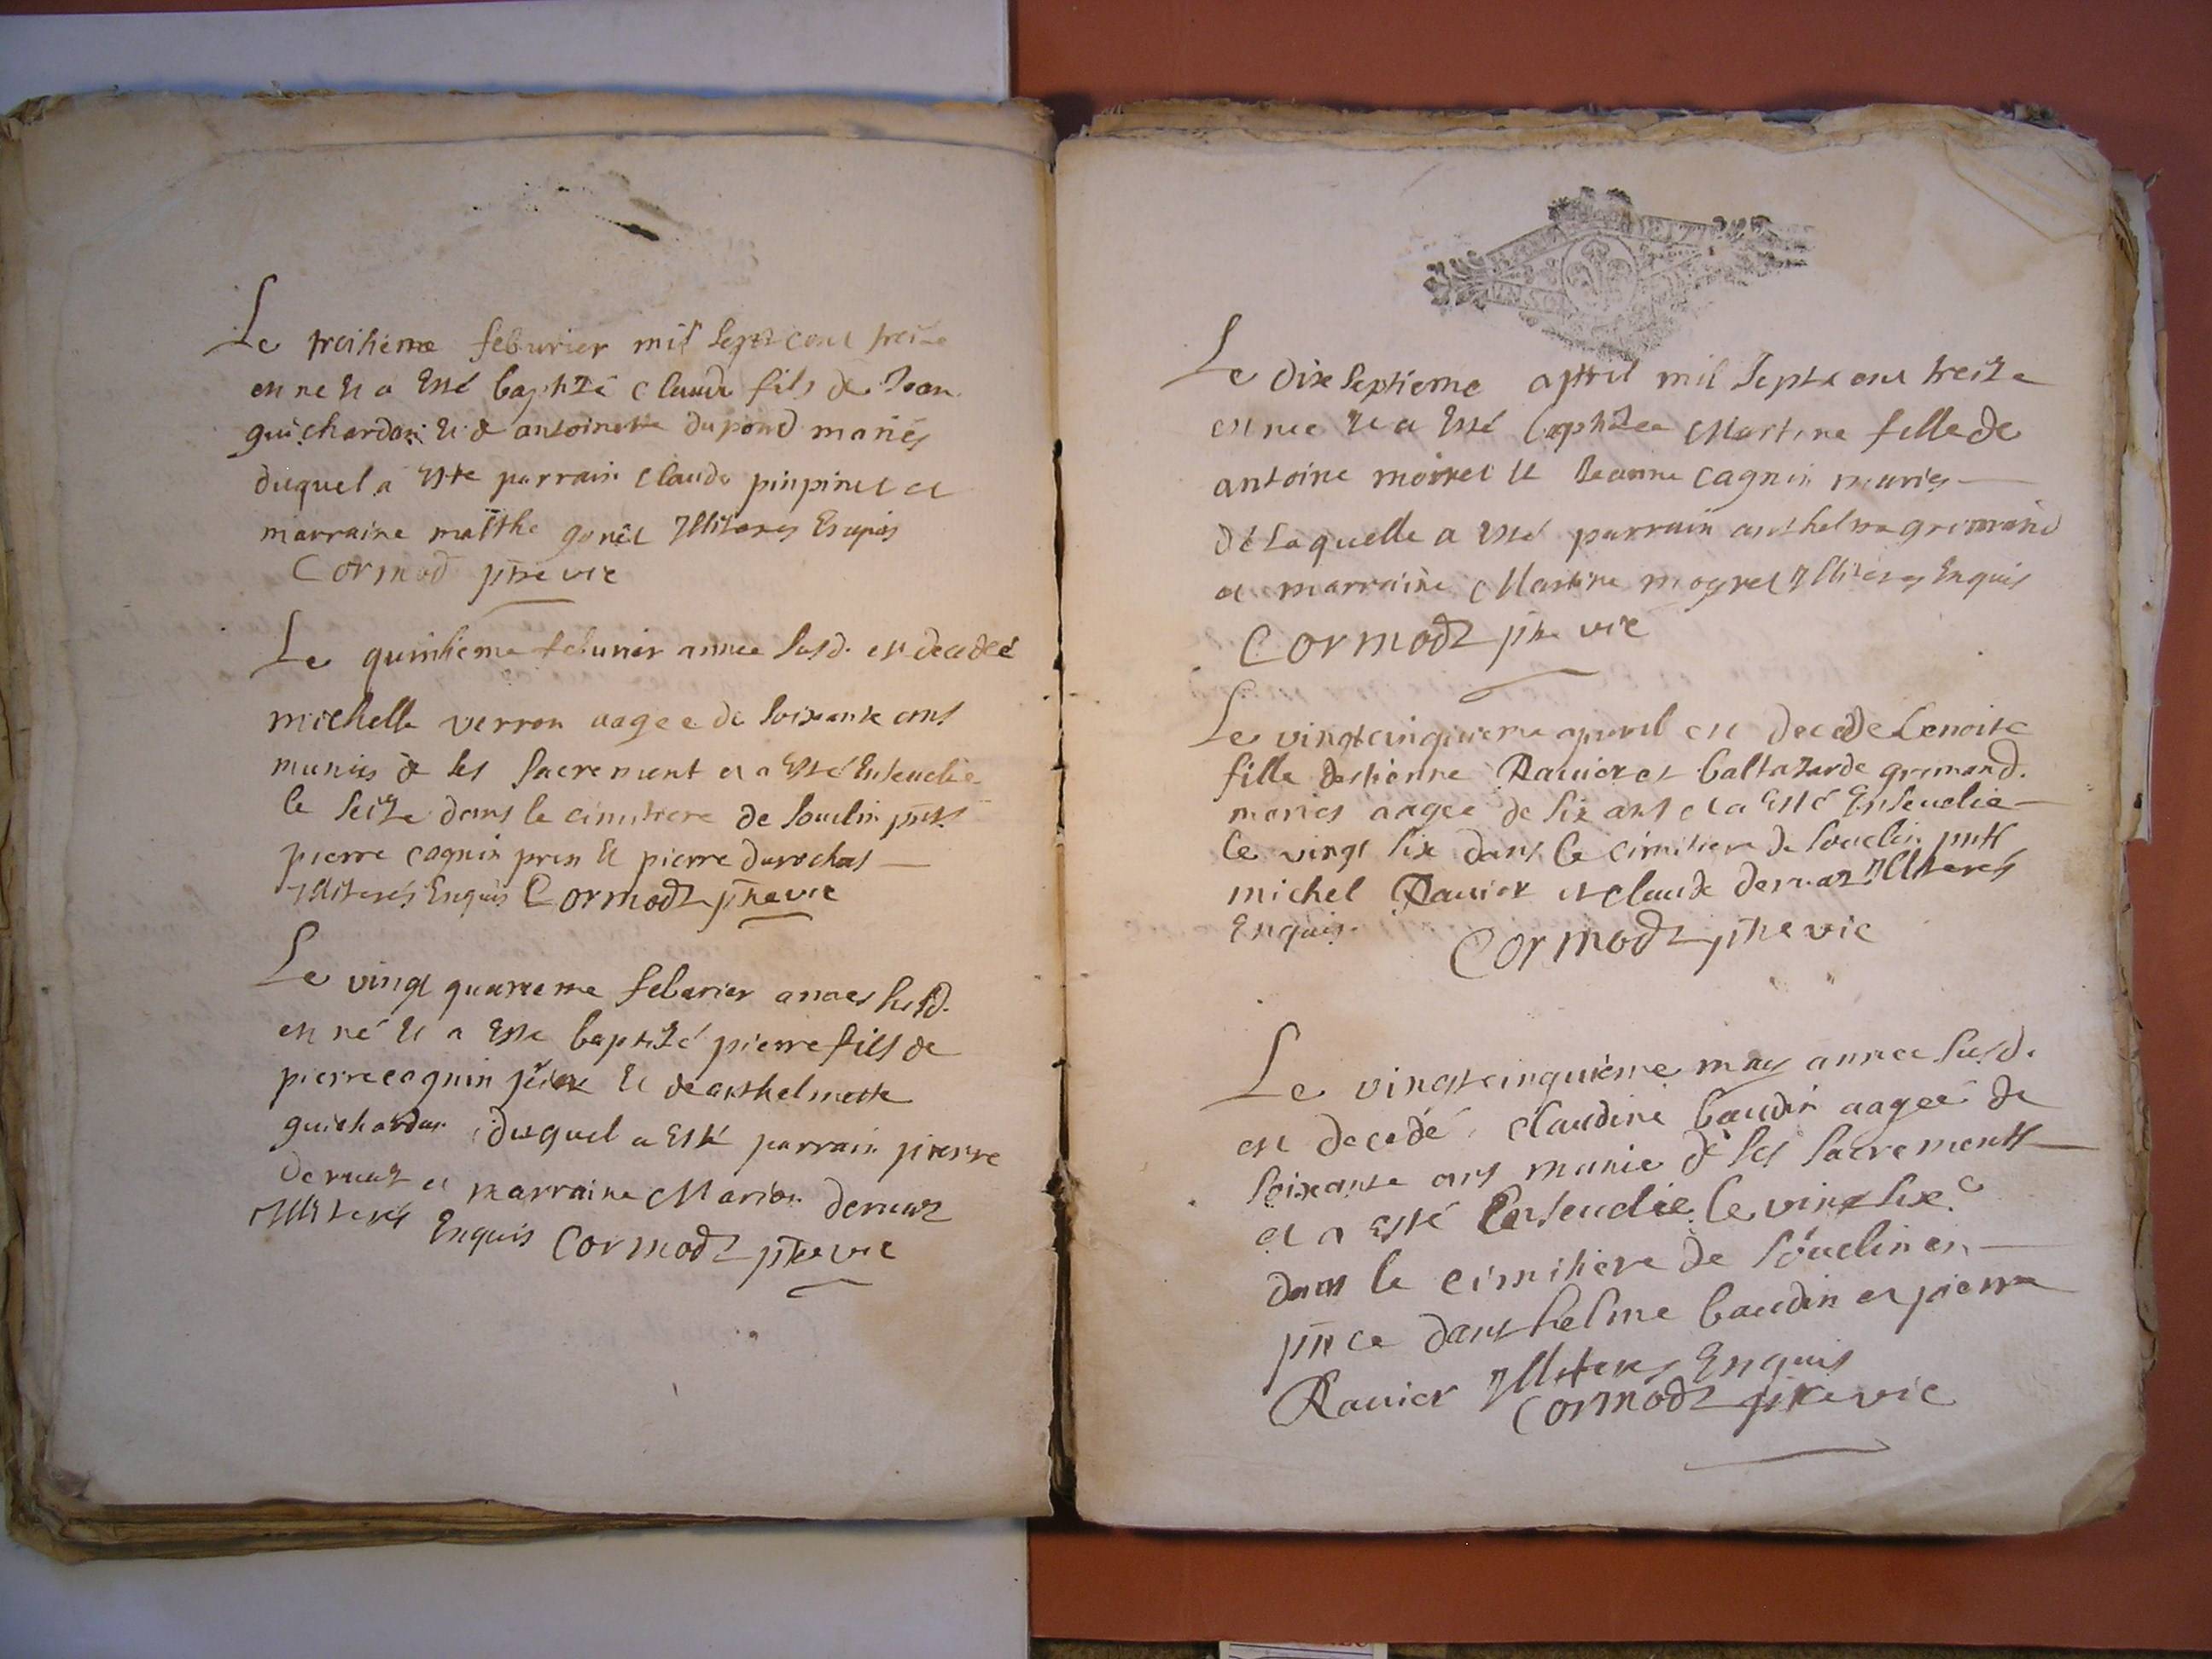 Le troisieme feburier mil sept cent treize
est ne et a esté baptizé claude fils de Jean
guichardon et de antoinette dupond mariés
duquel a este parrain claude pinpinet et
marraine malthe gonet Illiteres Enquis
Cormod ptre vic
Le quinsieme feburier annee susd. est decedeé
michelle verron aagee de soixante ans
munies de ses sacrement et a esté Enseuelie
le seize dans le cimitiere de souclin pnts
pierre cognin pren et pierre durochat
Illiterés Enquis Cormodz ptre vic
Le vingt quatrieme feburier annes susd.
est né et a este baptizé pierre fils de
pierre cognin et de anthelmette
guichardon duquel a esté parrain pierre
deruaz et marraine Marion deruaz
Illiterés Enquis Cormodz ptre vic
Le dixseptieme apuril mil sept cent treize
est nee et a esté baptizee Martine fille de
antoine moiret et Jeanne cagnin maries
de laquelle a esté parrain anthelme grimand
et marraine Martine moyret Illiteres Enquis
Cormodz ptre vic
Le vingtcinquieme apuril est decedé benoite
fille destienne Rauier et baltazarde grimand.
maries aagee de six ans et a esté Enseuelie
le vingt six dans le cimitiere de souclin pnts
michel Rauier et claude deruaz Illiterés
Enquis. Cormodz ptre vic
Le vingtcinquieme may annee susd.
est decedé claudine baudin aageé de
soixante ans munie de ses sacrements
et a esté Enseuelie le vingtsixe
dans le cimitiere de souclin en
pnce danthelme baudin et pierre
Rauier Illiteres Enquis
Cormodz ptre vic